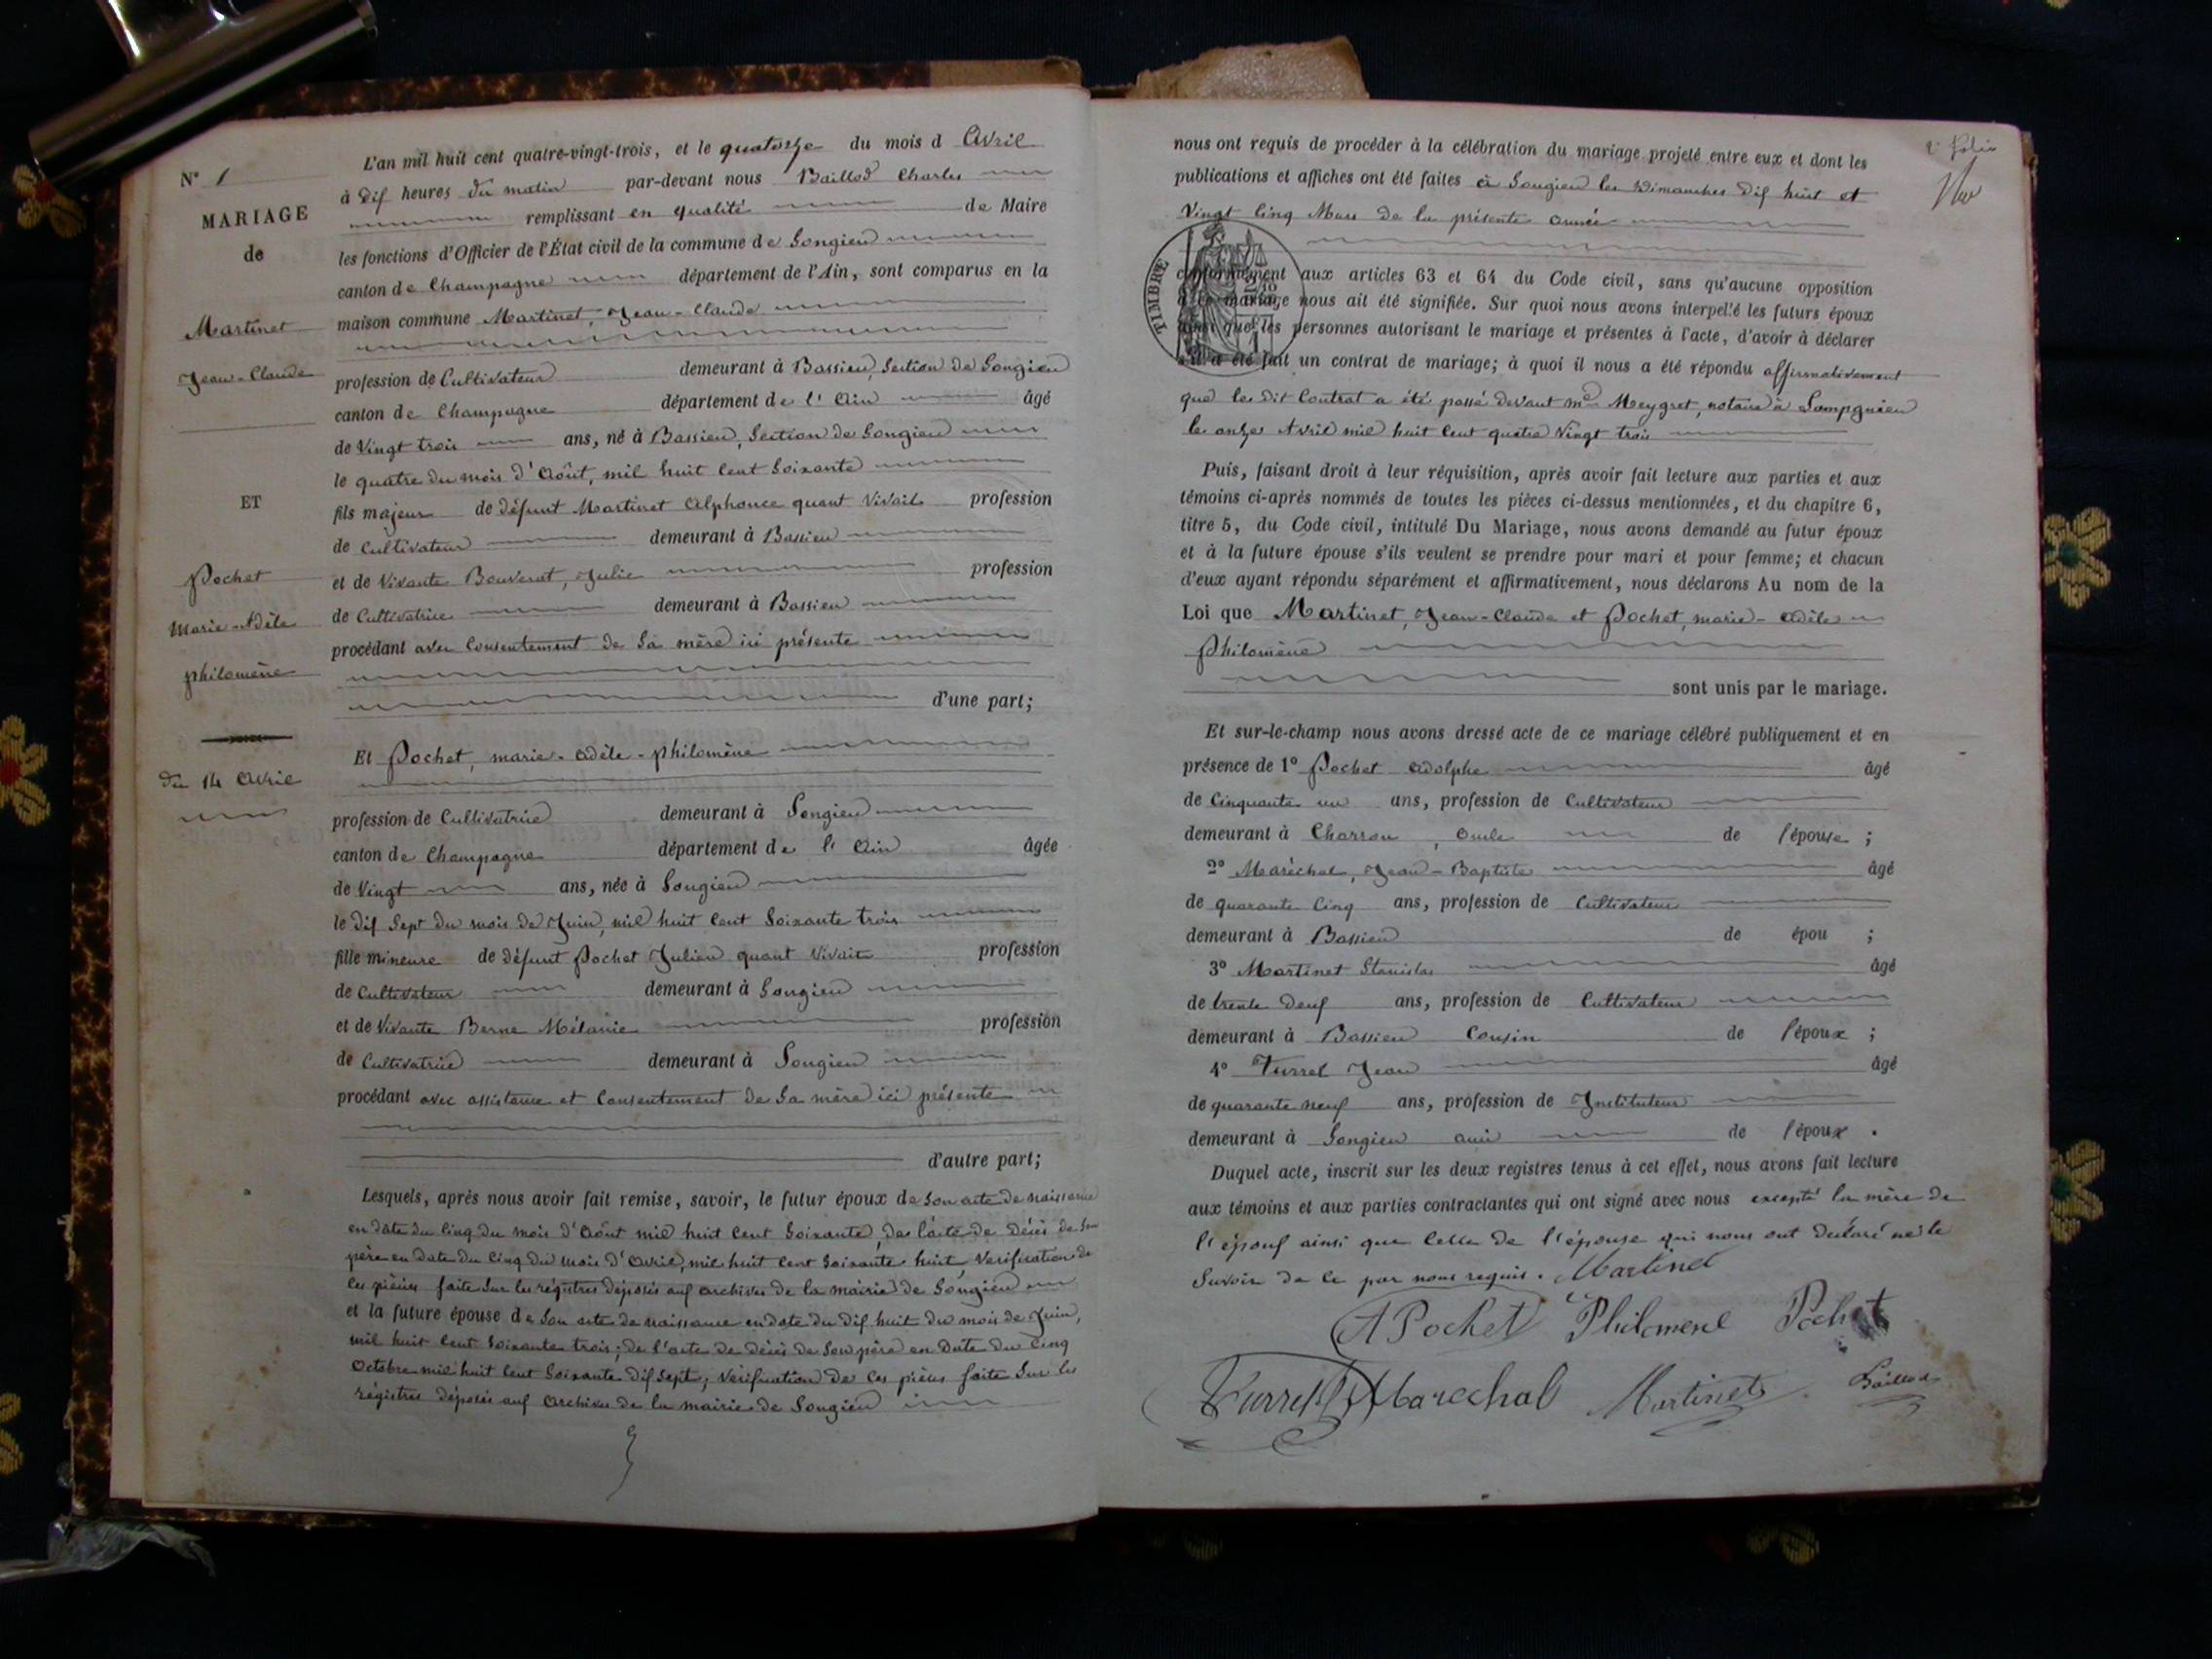 N° 1
MARIAGE
de
Martinet
Jean-Claude
ET
Pochet
Marie-Adèle
philomène
du 14 Avril
L'an mil huit cent quatre-vingt-trois, et le quatorze du mois d Avril
à dix heures du matin par-devant nous Baillod Charles
remplissant en qualité de Maire
les fonctions d'Officier de l'État civil de la commune de Songieu
canton de Champagne département de l'Ain, sont comparus en la
maison commune Martinet, Jean-Claude
profession de Cultivateur demeurant à Bassieu, Section de Songieu
canton de Champagne département de l'Ain âgé
de Vingt trois ans, né à Bassieu, Section de Songieu
le quatre du mois d'Août, mil huit cent Soixante
fils majeur de défunt Martinet Alphonce quant Vivait profession
de Cultivateur demeurant à Bassieu
et de Vivante Bouverat, Julie profession
de Cultivatrice demeurant à Bassieu
procédant avec Consentement de Sa mère ici présente
d'une part;
Et Pochet, marie-adèle-philomène
profession de Cultivatrice demeurant à Songieu
canton de Champagne département de l'Ain âgée
de Vingt ans, née à Songieu
le dix Sept du mois de Juin, mil huit cent Soixante trois
fille mineure de défunt Pochet Julien quant Vivait profession
de Cultivateur demeurant à Songieu
et de Vivante Berne Mélanie profession
de Cultivatrice demeurant à Songieu
procédant avec assistance et Consentement de Sa mère ici présente
d'autre part;
Lesquels, après nous avoir fait remise, savoir, le futur époux de Son acte de naissance
en date du Cinq du mois d'Août mil huit cent Soixante, de l'acte de décès de Son
père en date du Cinq du mois d'Avril, mil huit cent Soixante huit, Vérification de
ces pièces faite Sur les régistres déposés aux archives de la mairie de Songieu
et la future épouse de Son acte de naissance en date du dix huit du mois de Juin,
mil huit cent Soixante trois; de l'acte de décès de Son père en date du Cinq
Octobre mil huit cent Soixante dix Sept; Vérification de Ces pièces faite Sur les
régistres déposés aux archives de la mairie de Songieu
2e folio
nous ont requis de procéder à la célébration du mariage projeté entre eux et dont les
publications et affiches ont été faites à Songieu les Dimanches dix huit et
Vingt Cinq Mars de la présente année
TIMBRE
conformément aux articles 63 et 64 du Code civil, sans qu'aucune opposition
à ce mariage nous ait été signifiée. Sur quoi nous avons interpellé les futurs époux
ainsi que les personnes autorisant le mariage et présentes à l'acte, d'avoir à déclarer
s'il a été fait un contrat de mariage; à quoi il nous a été répondu affirmativement
que le dit Contrat a été passé devant me Meygret, notaire à
le onze Avril mil huit Cent quatre Vingt trois
Puis, faisant droit à leur réquisition, après avoir fait lecture aux parties et aux
témoins ci-après nommés de toutes les pièces ci-dessus mentionnées, et du chapitre 6,
titre 5, du Code civil, intitulé Du Mariage, nous avons demandé au futur époux
et à la future épouse s'ils veulent se prendre pour mari et pour femme; et chacun
d'eux ayant répondu séparément et affirmativement, nous déclarons Au nom de la
Loi que Martinet, Jean-Claude et Pochet, marie-adèle
Philomène
sont unis par le mariage.
Et sur-le-champ nous avons dressé acte de ce mariage célébré publiquement et en
présence de 1° Pochet Adolphe âgé
de Cinquante un ans, profession de Cultivateur
demeurant à Charron, oncle de l'épouse ;
2° Maréchal, Jean-Baptiste âgé
de quarante Cinq ans, profession de Cultivateur
demeurant à Bassieu de épou ;
3° Martinet Stanislas âgé
de trente deux ans, profession de Cultivateur
demeurant à Bassieu Cousin de l'époux ;
4° Turrel Jean âgé
de quarante neuf ans, profession de Instituteur
demeurant à Songieu ami de l'époux .
Duquel acte, inscrit sur les deux registres tenus à cet effet, nous avons fait lecture
aux témoins et aux parties contractantes qui ont signé avec nous excepté la mère de
l'époux ainsi que Celle de l'épouse qui nous ont déclaré ne le
Savoir de ce par nous requis. Martinet
A Pochet Philomene Pochet
Turrel Marechal Martinet Baillod